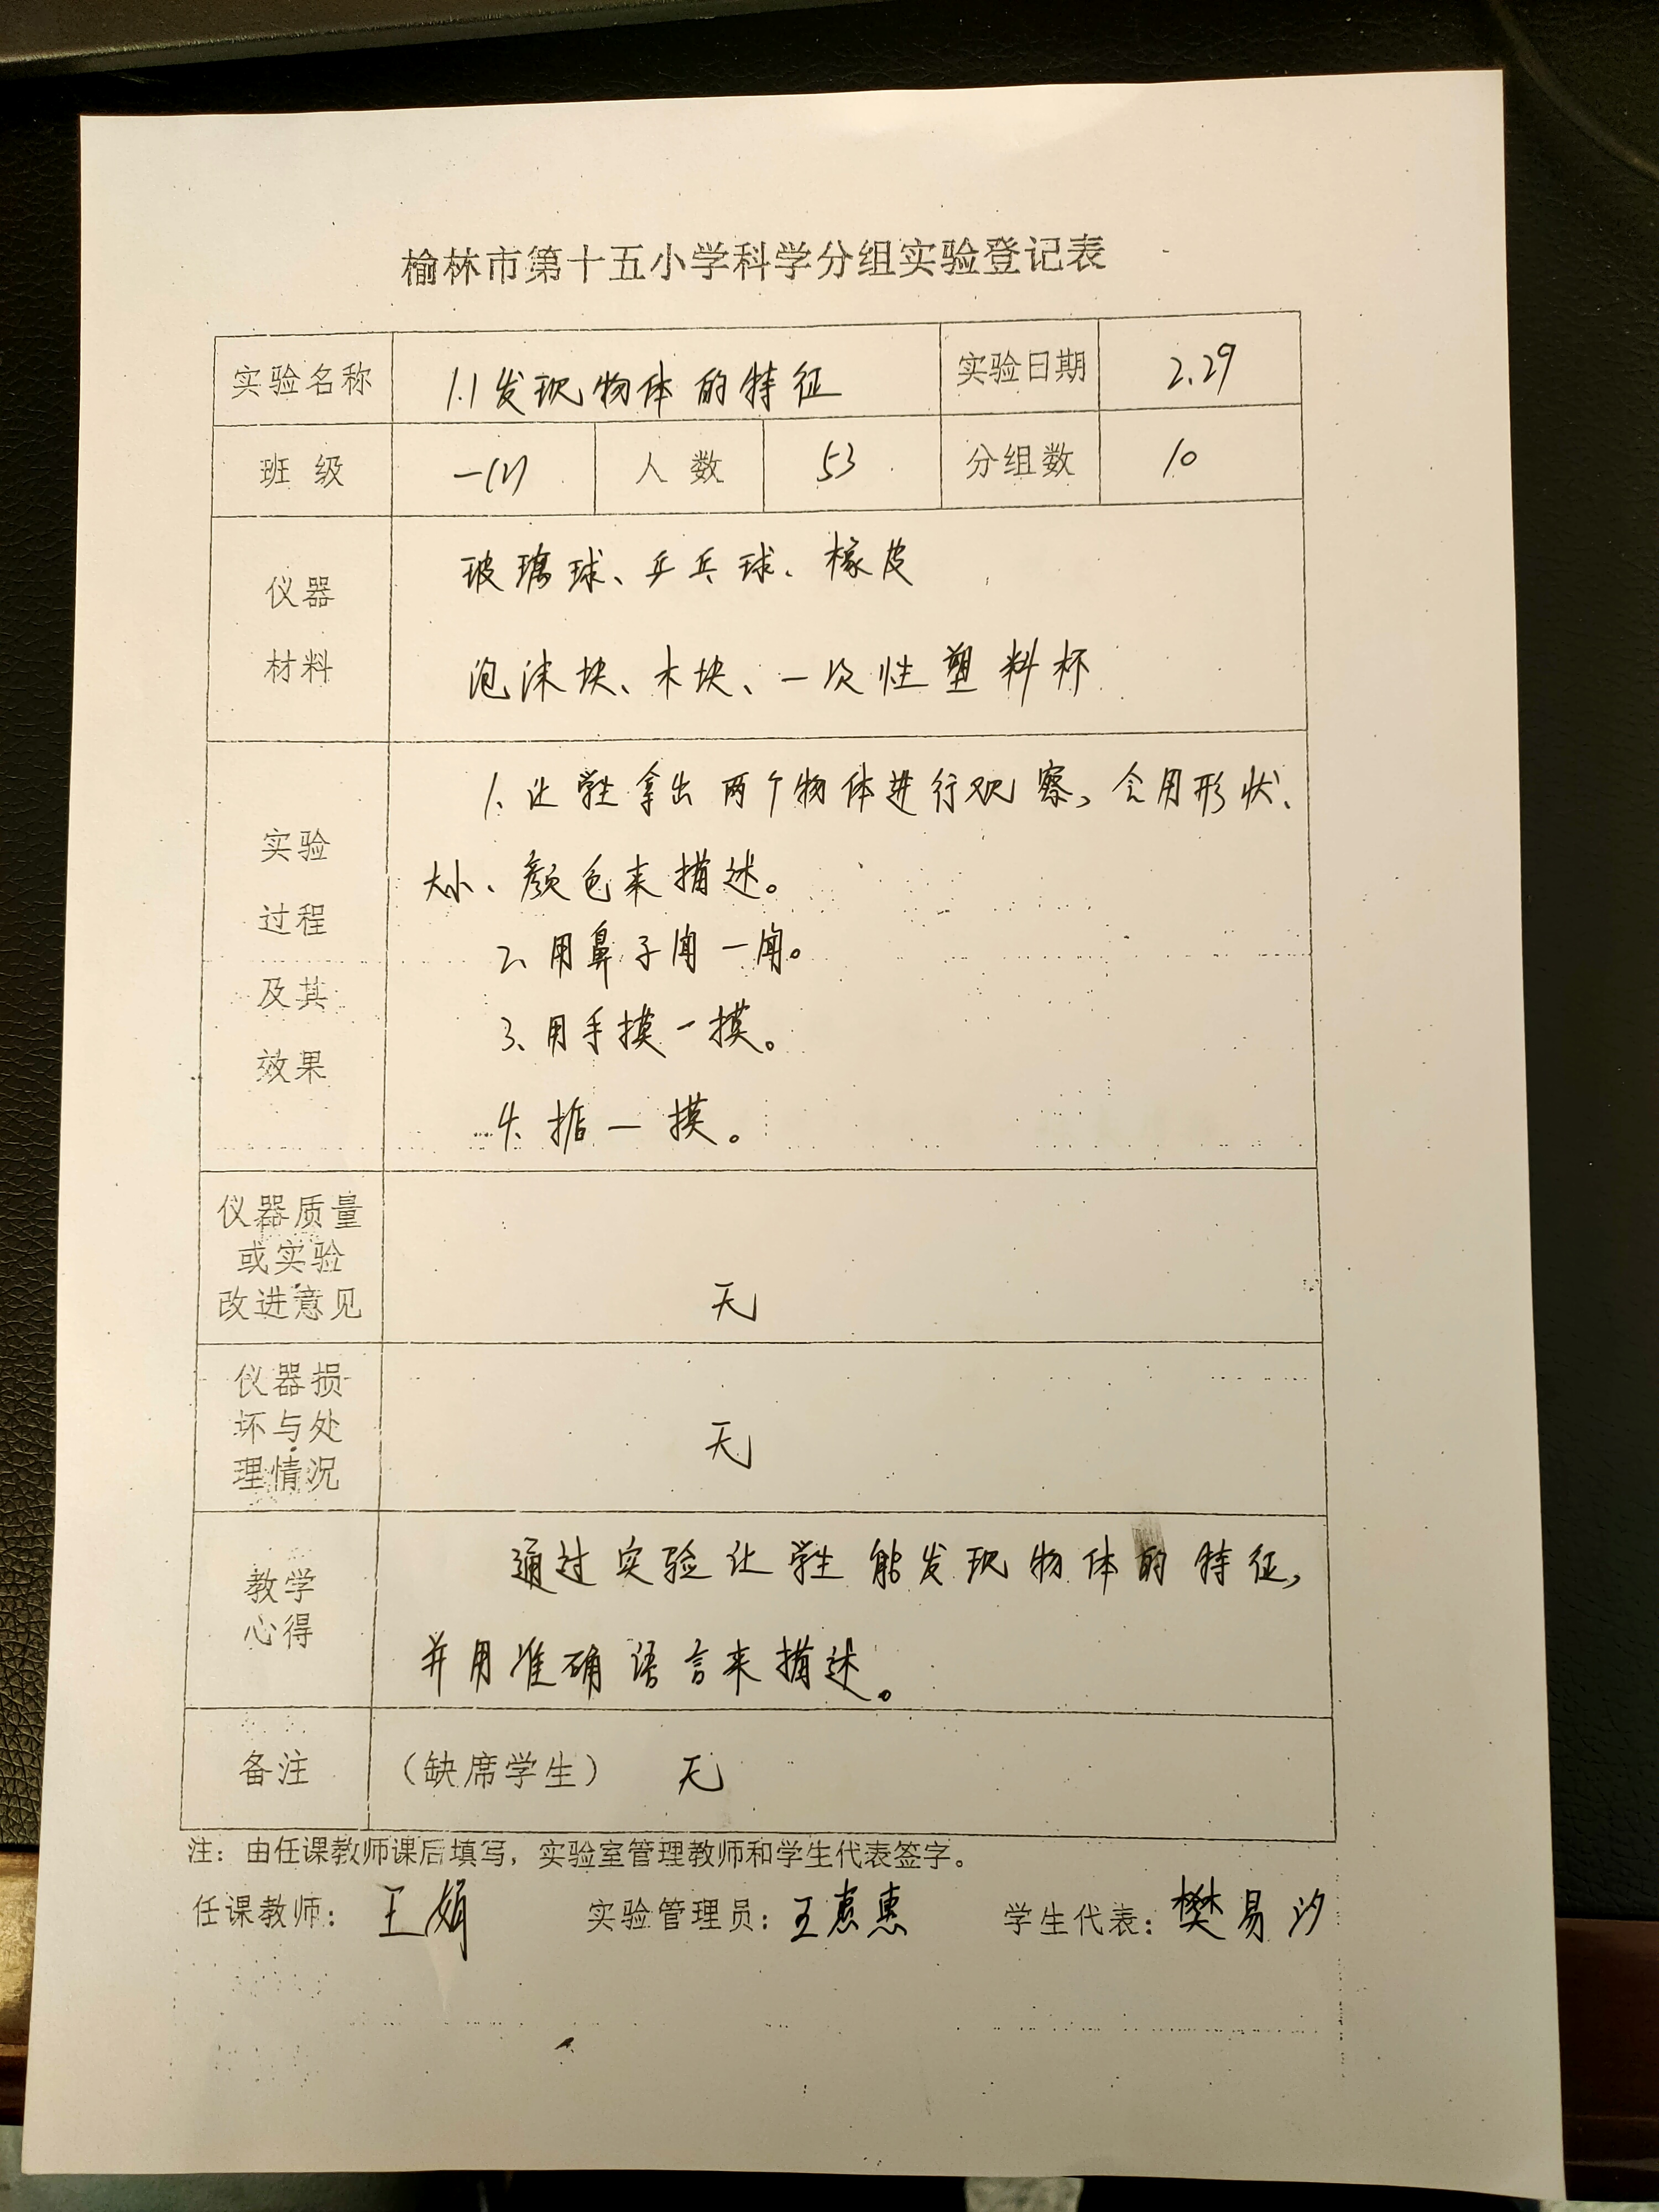 榆林市第十五小学科学分组实验登记表
实验名称 1.1发现物体的特征 实验日期 2.29
班级 一(2) 人数 53 分组数 10
仪器 玻璃球、乒乓球、橡皮
材料 泡沫块、木块、一次性塑料杯
1、让学生拿出两个物体进行观察,会用形状、
实验
大小、颜色来描述。
过程
2、用鼻子闻一闻。
及其
3、用手摸一摸。
效果
4、掂一摸。
仪器质量
或实验
改进意见 无
仪器损
坏与处 无
理情况
教学 通过实验让学生能发现物体的特征,
心得 并用准确语言来描述。
备注 (缺席学生) 无
注:由任课教师课后填写,实验室管理教师和学生代表签字。
任课教师:王娟 实验管理员:王惠惠 学生代表:樊易汐